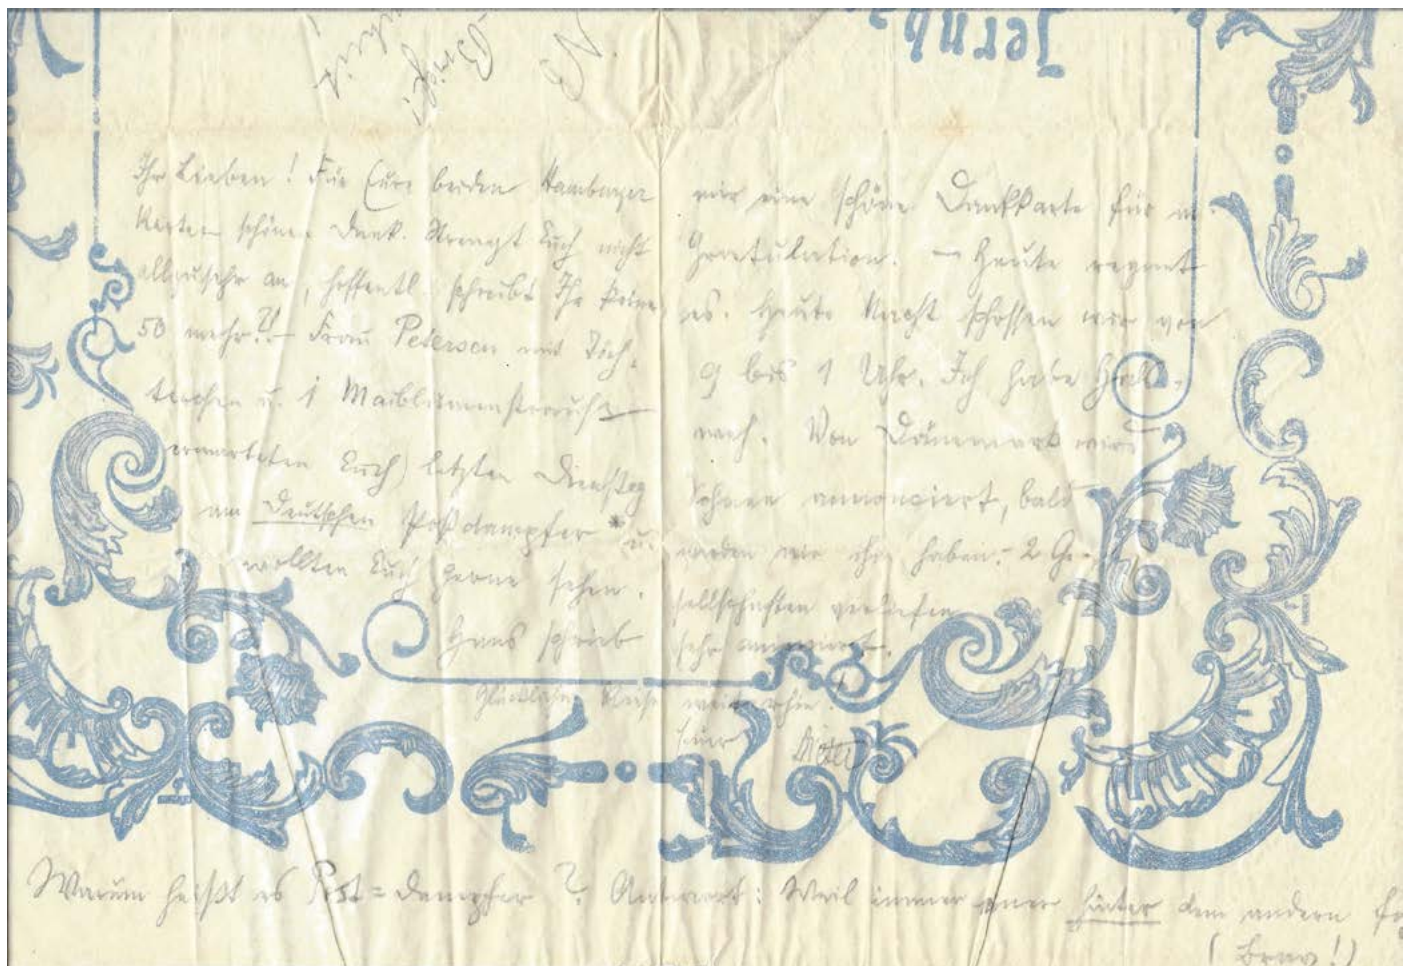 NB
Brief!
Ihr Lieben! Für Eure beiden Hamburger
Karten schönen Dank. Strengt Euch nicht
allzusehr an, hoffentl. schreibt Ihr keine
50 mehr?! – Frau Peterson mit Töch-
terchen u. 1 Maiblumenstrauß
erwarteten Euch letzten Dienstag
am Deutschen Postdampfer * u.
wollten Euch gerne sehen.
Hans schrieb
mir eine schöne Dankkarte für m.
Gratulation. – Heute regnet
es. Heute Nacht schossen wir von
9 bis 1 Uhr. Ich habe
weh. Von Dänemark wird
annonciert, bald
werden wir ihn haben. – 2 Ge-
sellschaften verliefen
sehr animiert.
Glückliche Reise weiterhin!
Euer
Warum heißt es Post=Dampfer? Antwort: Weil immer einer hinter dem andern
(Brav!)